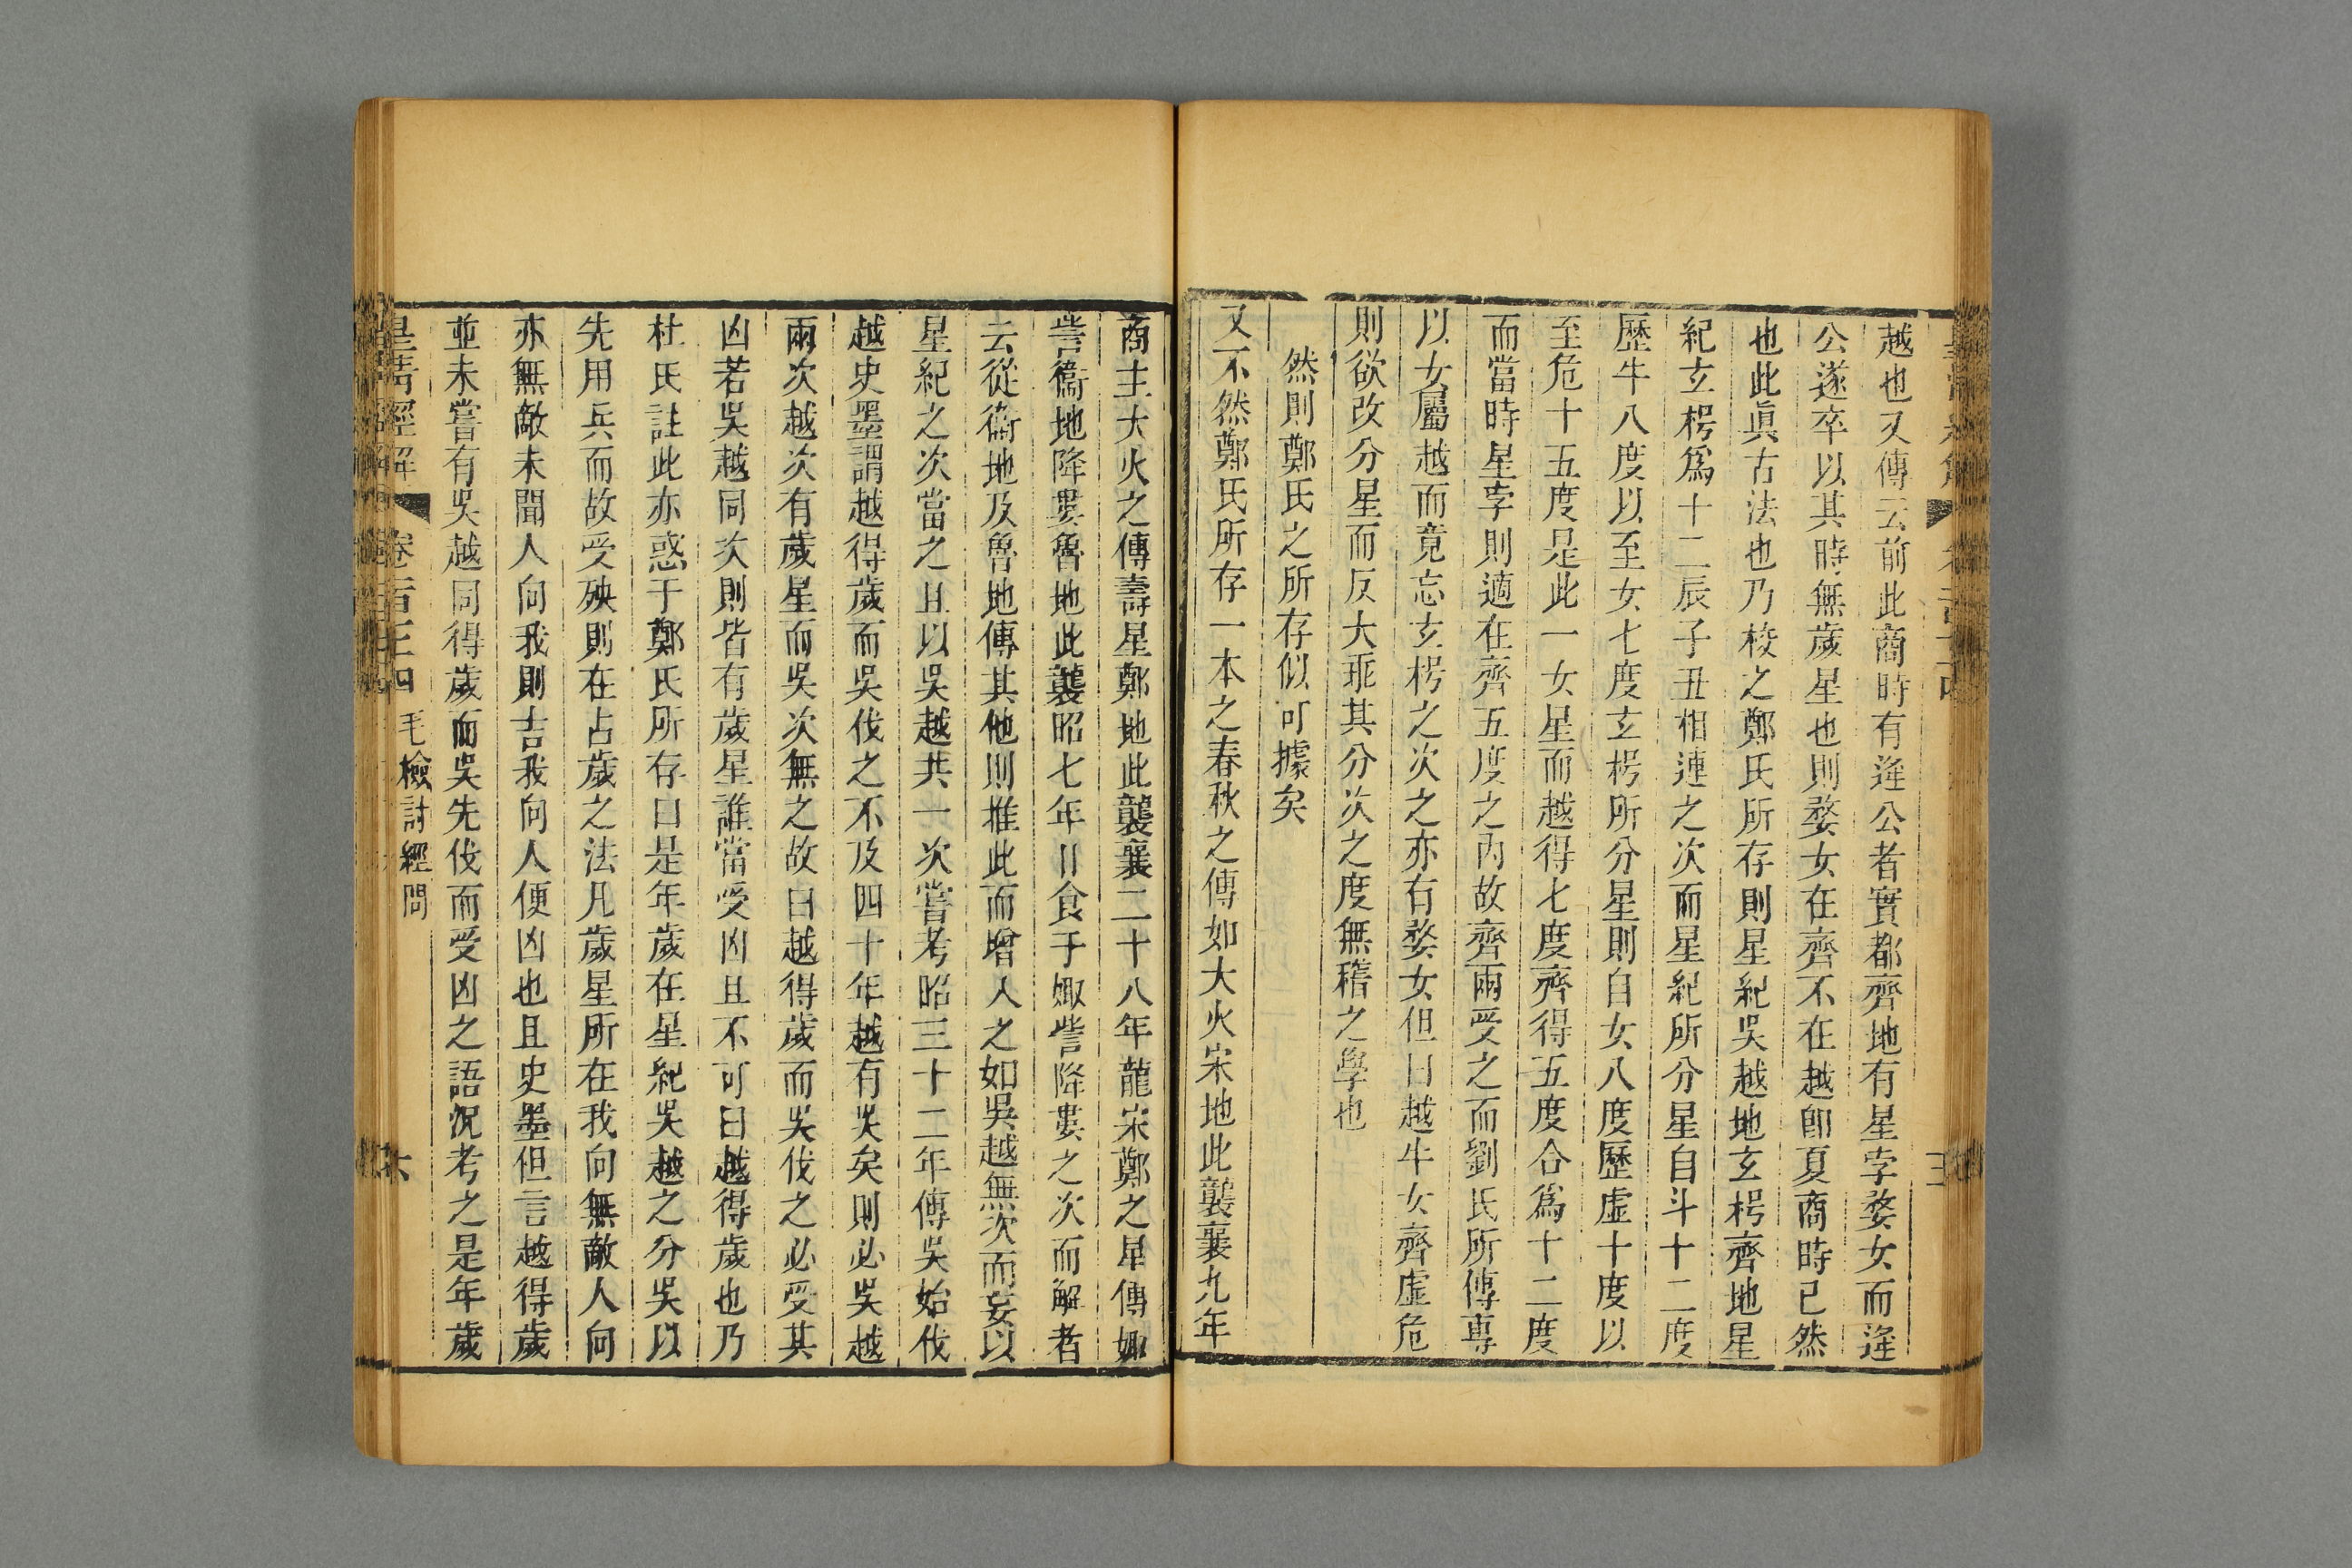 越也又傳云前此商時有逄公者實都齊地有星孛婺女而逄
公遂卒以其時無歲星也則婺女在齊不在越卽夏商時已然
也此眞古法也乃校之鄭氏所存則星紀吳越地玄枵齊地星
紀玄枵爲十二辰子丑相連之次而星紀所分星自斗十二度
歷牛八度以至女七度玄枵所分星則自女八度歷虛十度以
至危十五度是此一女星而越得七度齊得五度合爲十二度
而當時星孛則適在齊五度之內故齊兩受之而劉氏所傳專
以女屬越而竟忘玄枵之次之亦有婺女但曰越牛女齊虛危
則欲改分星而反大乖其分次之度無稽之學也
然則鄭氏之所存似可據矣
又不然鄭氏所存一本之春秋之傳如大火宋地此襲襄九年
商主大火之傳壽星鄭地此襲襄二十八年龍宋鄭之星傳娵
訾衞地降婁魯地此襲昭七年日食于娵訾降婁之次而解者
云從衞地及魯地傳其他則推此而增入之如吳越無次而妄以
星紀之次當之且以吳越共一次嘗考昭三十二年傳吳始伐
越史墨謂越得歲而吳伐之不及四十年越有吳矣則必吳越
兩次越次有歲星而吳次無之故曰越得歲而吳伐之必受其
凶若吳越同次則皆有歲星誰當受凶且不可曰越得歲也乃
杜氏註此亦惑于鄭氏所存曰是年歲在星紀吳越之分吳以
先用兵而故受殃則在占歲之法凡歲星所在我向無敵人向
亦無敵未聞人向我則吉我向人便凶也且史墨但言越得歲
並未嘗有吳越同得歲而吳先伐而受凶之語況考之是年歲
皇清經解 卷一百七十四 毛檢討經問 六